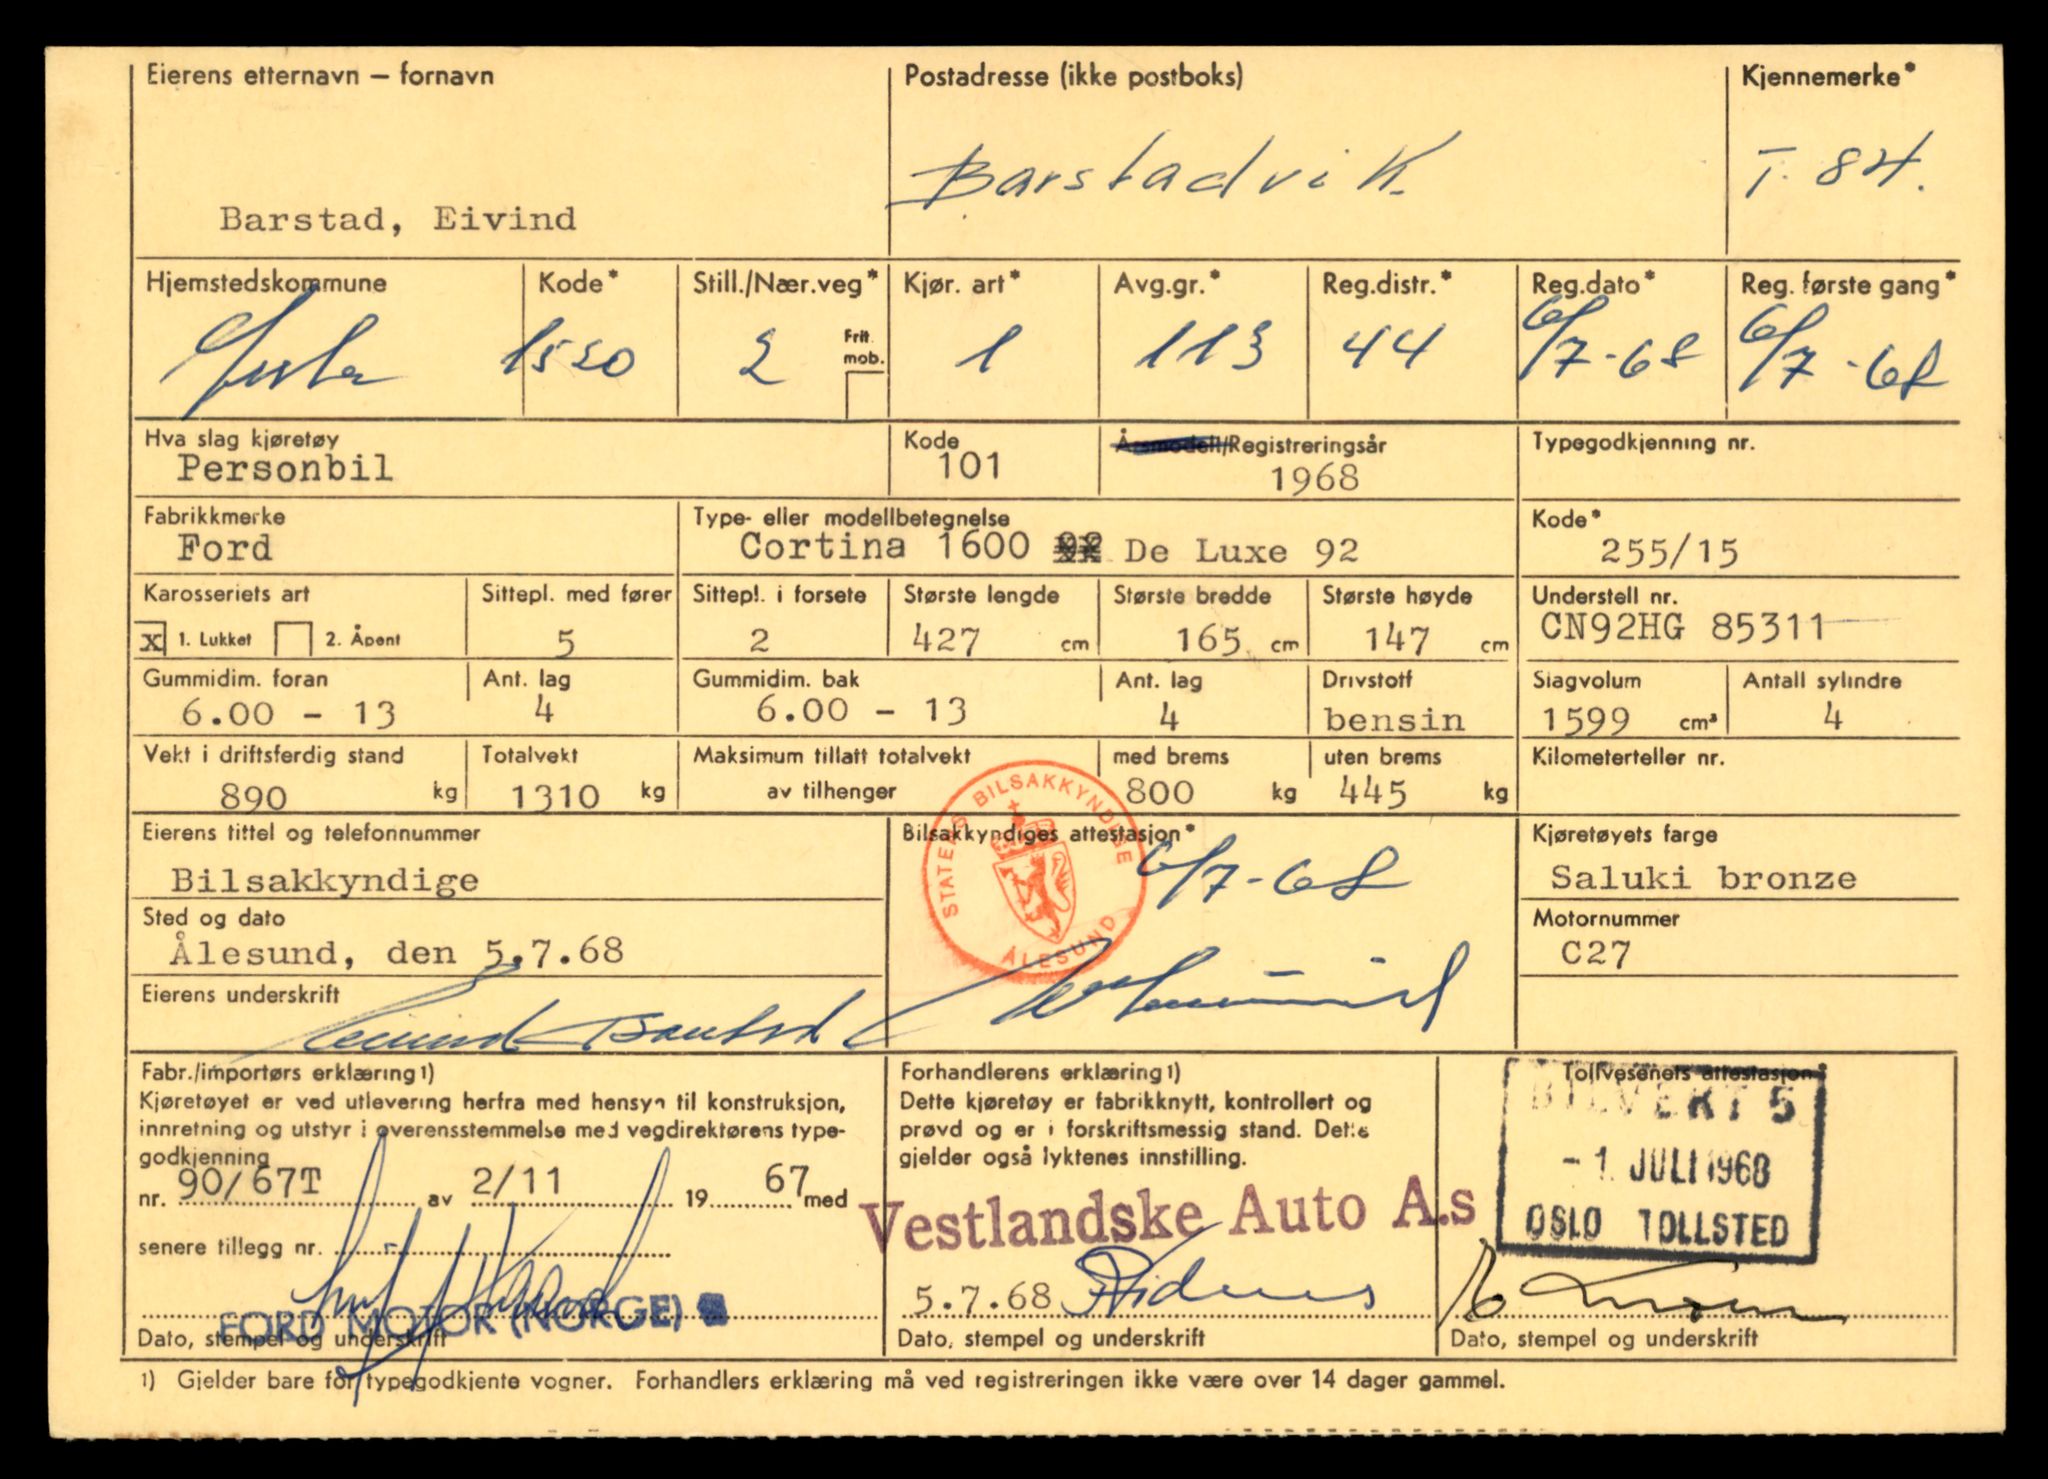 Eierens etternavn — fornavn Postadresse (ikke postboks) Kjennemerke*
Barstad, Eivind Barstadvik. T. 84.
Hjemstedskommune Kode* Still./Nær.veg* Kjør. art* Avg.gr.* Reg.distr.* Reg.dato* Reg. første gang*
1520 2 Frit. mob. 1 113 44 6/7-68 6/7-68
Hva slag kjøretøy Kode Årsmodell/Registreringsår Typegodkjenning nr.
Personbil 101 1968
Fabrikkmerke Type- eller modellbetegnelse Kode*
Ford Cortina 1600 De Luxe 92 255/15
Karosseriets art Sittepl. med fører Sittepl. i forsete Største lengde Største bredde Største høyde Understell nr.
X 1. Lukket 2. Åpent 5 2 427 cm 165 cm 147 cm CN92HG 85311
Gummidim. foran Ant. lag Gummidim. bak Ant. lag Drivstoff Slagvolum Antall sylindre
6.00 - 13 4 6.00 - 13 4 bensin 1599 cm³ 4
Vekt i driftsferdig stand Totalvekt Maksimum tillatt totalvekt med brems uten brems Kilometerteller nr.
890 kg 1310 kg av tilhenger 800 kg 445 kg
Eierens tittel og telefonnummer Bilsakkyndiges attestasjon* Kjøretøyets farge
Bilsakkyndige 6/7-68 Saluki bronze
STATENS BILSAKKYNDIGE ÅLESUND
Sted og dato Motornummer
Ålesund, den 5.7.68 C27
Eierens underskrift
Eivind Barstad
Fabr./importørs erklæring1) Forhandlerens erklæring1) Tollvesenets attestasjon
Kjøretøyet er ved utlevering herfra med hensyn til konstruksjon, Dette kjøretøy er fabrikknytt, kontrollert og BILVERK 5
innretning og utstyr i overensstemmelse med vegdirektørens type- prøvd og er i forskriftsmessig stand. Dette
godkjenning gjelder også lyktenes innstilling. -1. JULI 1968
nr. 90/67T av 2/11 19 67 med Vestlandske Auto A.s OSLO TOLLSTED
senere tillegg nr.
FORD MOTOR (NORGE) 5.7.68
Dato, stempel og underskrift Dato, stempel og underskrift Dato, stempel og underskrift
1) Gjelder bare for typegodkjente vogner. Forhandlers erklæring må ved registreringen ikke være over 14 dager gammel.